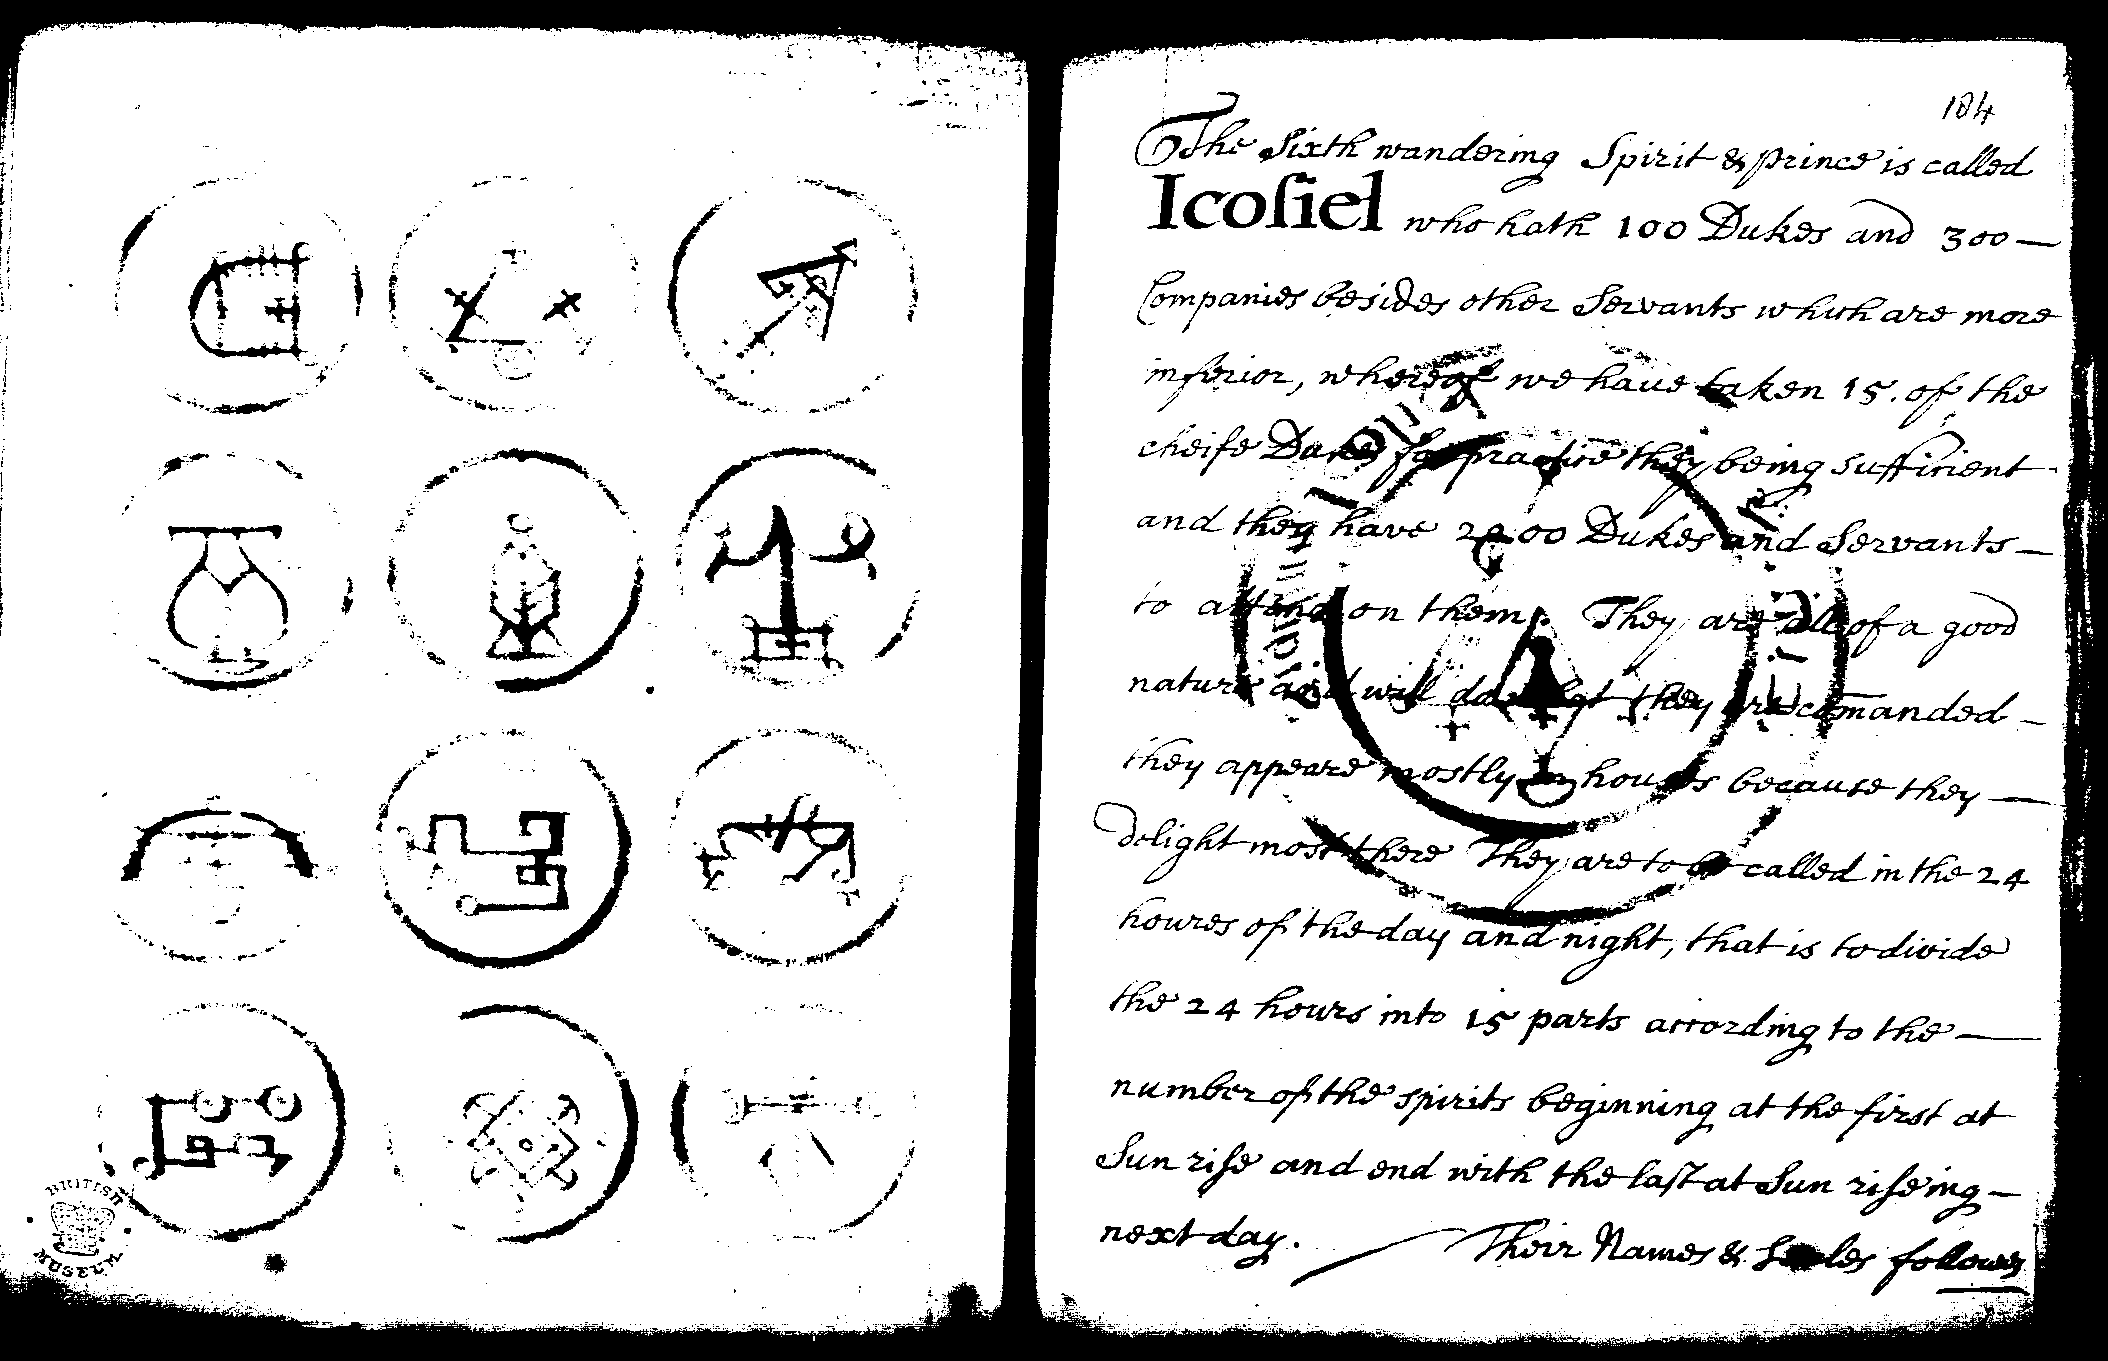 BRITISH MUSEUM
184
The Sixth wandering Spirit & prince is called
Icoſiel who hath 100 Dukes and 300 —
Companies besides other Servants which are more
inferior, whereof we have taken 15. of the
cheife Dukes for practice they being sufficient
and they have 2200 Dukes and Servants —
to attend on them. They are all of a good
nature and will doe what they are comanded —
they appeare mostly in houses because they —
delight most there They are to be called in the 24
houres of the day and night, that is to divide
the 24 hours into 15 parts according to the —
number of the spirits beginning at the first at
Sun riſe and end with the laſt at Sun riſeing —
next day. Their Names & Seales followes